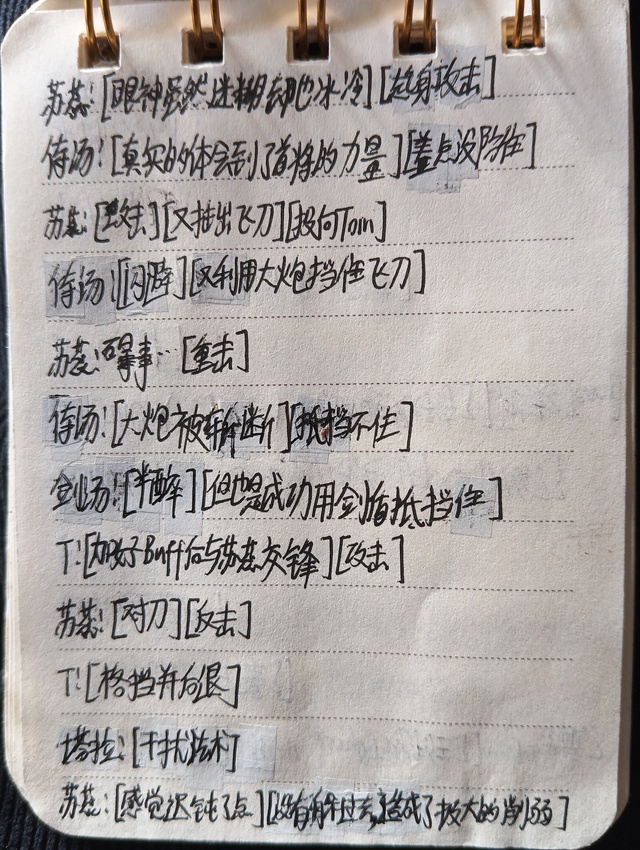 苏蕊:[眼神虽然迷糊却也冰冷][起身攻击]
侍场:[真实的体会到了首将的力量][差点没防住]
苏蕊:[攻击][又抽出飞刀][投向Tom]
侍场:[闪避][又利用大炮挡住飞刀]
苏蕊:碍事…[重击]
侍场:[大炮被斩断][抵挡不住]
剑场:[半醉][但也是成功用剑盾抵挡住]
T:[加好Buff后与苏蕊交锋][攻击]
苏蕊:[对刀][反击]
T:[格挡并后退]
塔拉:[干扰法术]
苏蕊:[感觉迟钝了点][没有角牛过去,造成了极大的削弱]